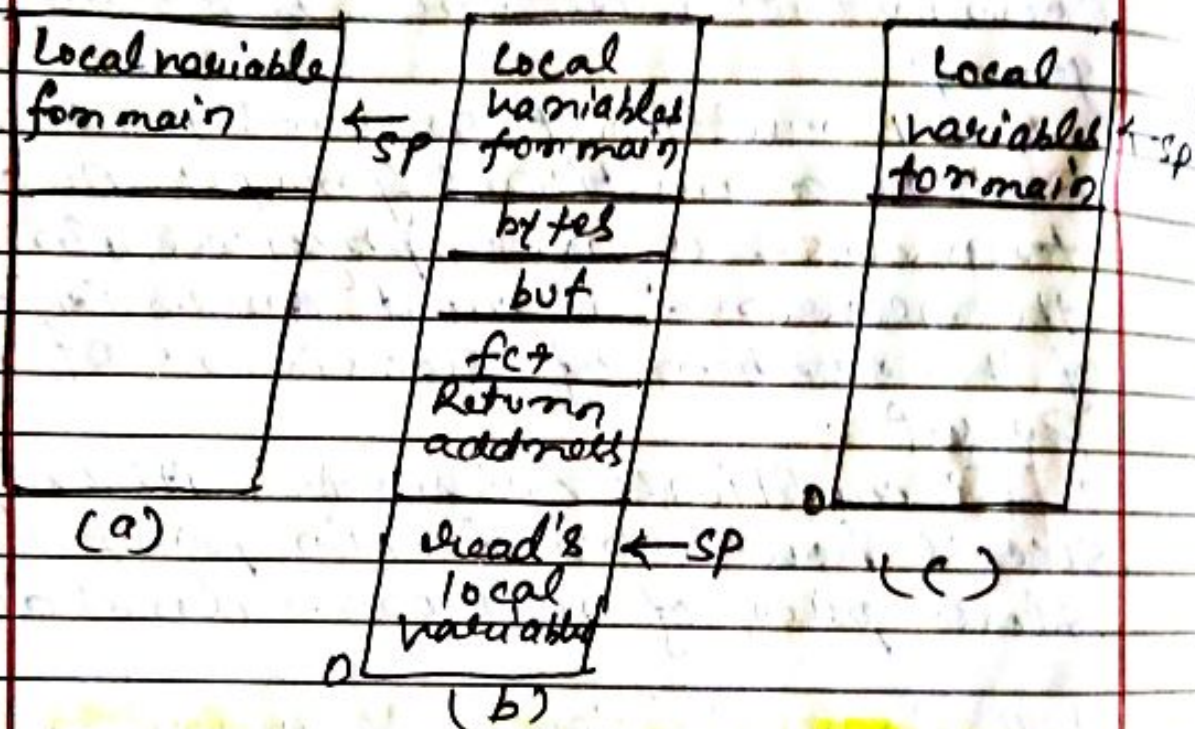 Local variable
for main
← SP
(a)
Local
variables
for main
bytes
buf
fct
Return
address
read's
local
variables
← SP
0
(b)
Local
variables
for main
← SP
0
(c)